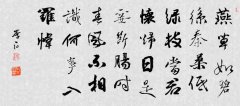 燕草如碧
絲秦桑低
綠枝當君
懷歸日是
妾斷腸時
春風不相
識何事入
羅幃